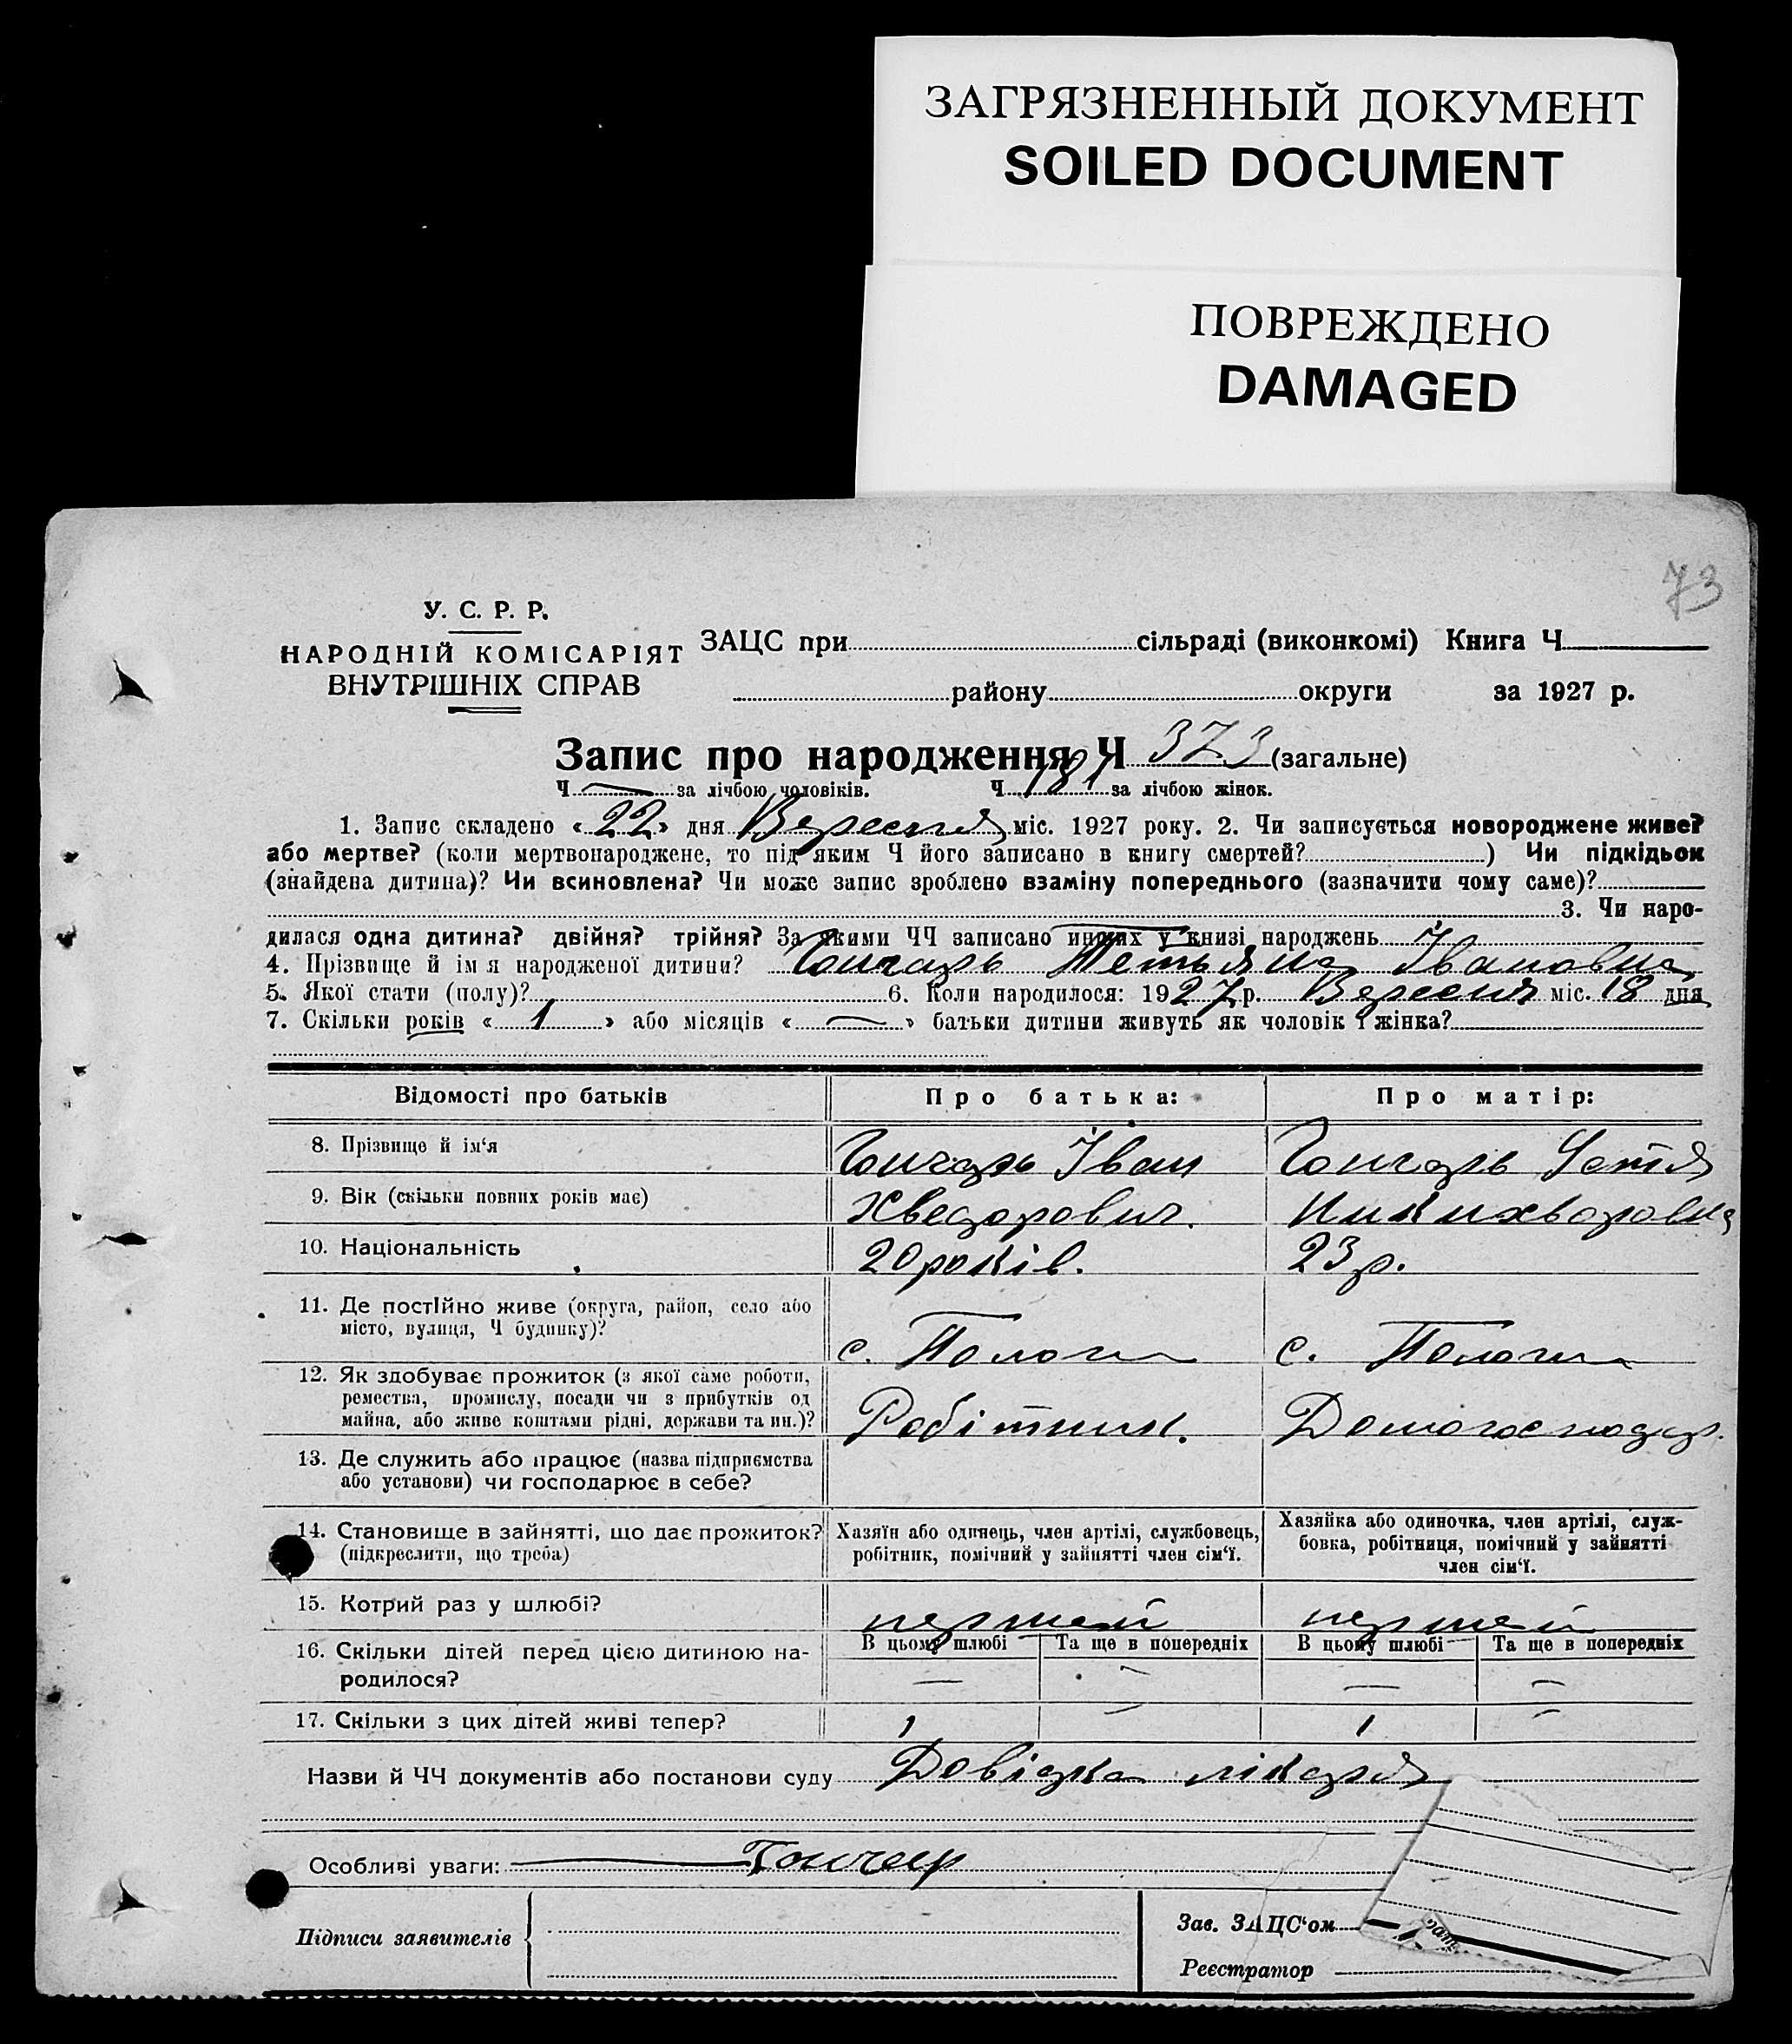 ЗАГРЯЗНЕННЫЙ ДОКУМЕНТ
SOILED DOCUMENT
ПОВРЕЖДЕНО
DAMAGED
73
У. С. Р. Р.
НАРОДНІЙ КОМІСАРІЯТ
ВНУТРІШНІХ СПРАВ
ЗАЦС при сільраді (виконкомі) Книга Ч.
району округи за 1927 р.
Запис про народження Ч 373 (загальне)
Ч — за лічбою чоловіків. Ч 181 за лічбою жінок.
1. Запис складено «22» дня Вересня міс. 1927 року. 2. Чи записується новороджене живе?
або мертве? (коли мертвонароджене, то під яким Ч його записано в книгу смертей? ) Чи підкідьок
(знайдена дитина)? Чи всиновлена? Чи може запис зроблено взаміну попереднього (зазначити чому саме)?
3. Чи наро-
дилася одна дитина? двійня? трійня? За якими ЧЧ записано инших у книзі народжень
4. Прізвище й ім'я народженої дитини? Гончарь Тетьяна Івановна
5. Якої стати (полу)? 6. Коли народилося: 1927 р. Вересня міс. 18 дня
7. Скільки років «1» або місяців «—» батьки дитини живуть як чоловік і жінка?
Відомості про батьків Про батька: Про матір:
8. Прізвище й ім‘я Гончарь Іван Гончарь
9. Вік (скільки повних років має) Хведорович. Никихворовна
10. Національність 20 років. 23 р.
11. Де постІйно живе (округа, район, село або
місто, вулиця, Ч будинку)? с. Пологи с. Пологи
12. Як здобуває прожиток (з якої саме роботи,
ремества, промислу, посади чи з прибутків од
майна, або живе коштами рідні, держави та ин.)? Робітник. Домогосподар.
13. Де служить або працює (назва підприємства
або установи) чи господарює в себе?
14. Становище в зайнятті, що дає прожиток?
(підкреслити, що треба)
Хазяїн або одинець, член артілі, службовець,
робітник, помічний у зайнятті член сім‘ї.
Хазяйка або одиночка, член артілі, служ-
бовка, робітниця, помічний у зайнятті
член сім‘ї.
15. Котрий раз у шлюбі? першей першей
В цьому шлюбі Та ще в попередніх В цьому шлюбі Та ще в попередніх
16. Скільки дітей перед цією дитиною на-
родилося? — — — —
17. Скільки з цих дітей живі тепер? 1 — 1 —
Назви й ЧЧ документів або постанови суду Довідка лікаря
Особливі уваги: Гончар
Підписи заявителів
Зав. ЗАЦС‘ом
Реєстратор